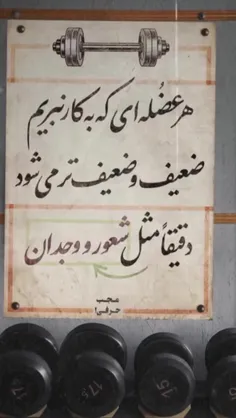 هر عضُله‌ای که به کار نبریم
ضعیف و ضعیف‌تر می‌شود
دقیقاً مثل شعور و وجدان
عجب
حرفی!
17.5